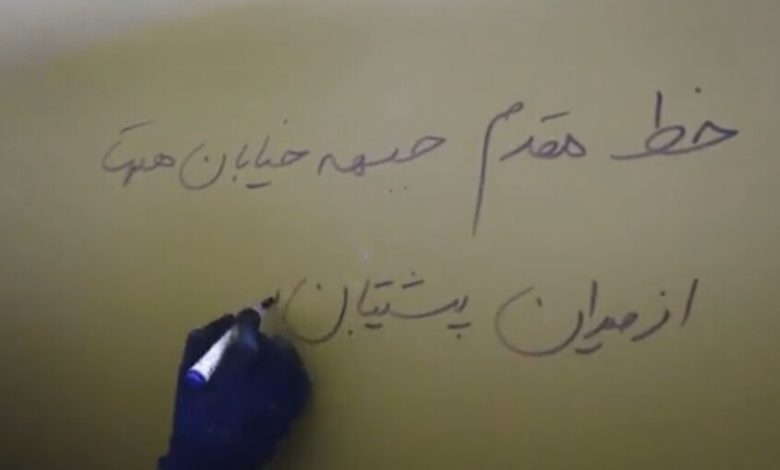 خط مقدم جبهه خیابان هست
از میدان پشتیبان